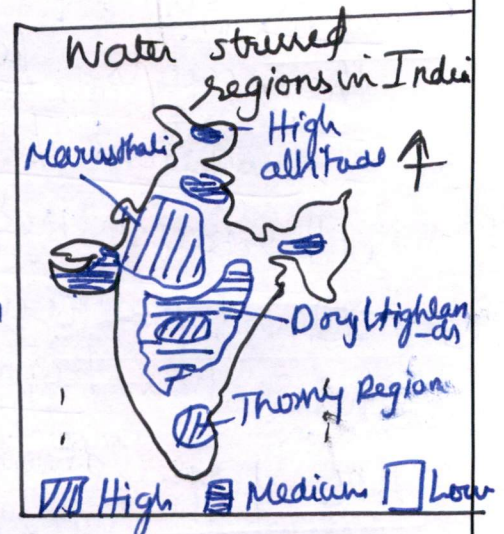 Water stressed
regions in India
High
altitude
Marusthali
Dry Highlan
-ds
Thorny Region
High Medium Low